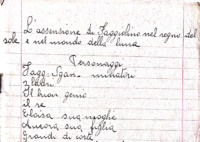 L'ascensione di Faggiolino nel regno del
sole e nel mondo della luna
Personaggi
Fagg. Sgan. minatori
Il buon genio
il re
Eloisa sua moglie
Aurora sua figlia
Grandi di corte